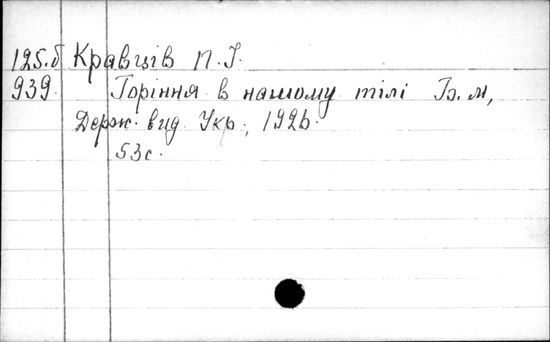 125.б Кравців П. І.
939. Горіння в нашому тілі Б. м,
Держ. вид. Укр., 1926.
53с.